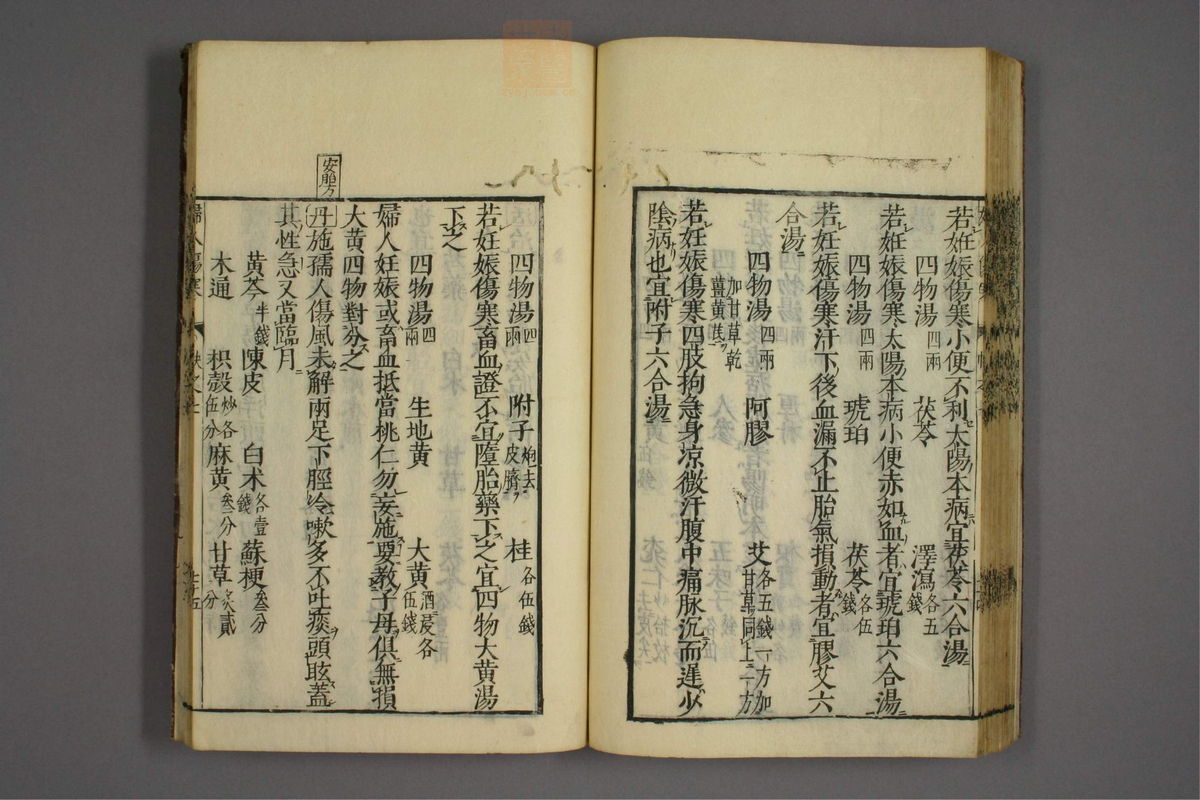 若妊娠傷寒小便不利太陽本病宜茯苓六合湯
四物湯四兩 茯苓 澤瀉各五錢
若妊娠傷寒太陽本病小便赤如血者宜琥珀六合湯
四物湯四兩 琥珀 茯苓各伍錢
若妊娠傷寒汗下後血漏不止胎氣損動者宜膠艾六
合湯
四物湯四兩 阿膠 艾各五錢一方加甘草同上一方
加甘草乾薑黃芪
若妊娠傷寒四肢拘急身凉微汗腹中痛脉沉而遲少
陰病也宜附子六合湯
四物湯四兩 附子炮去皮臍 桂各伍錢
若妊娠傷寒畜血證不宜墮胎藥下之宜四物大黃湯
下之
四物湯四兩 生地黃 大黃酒浸各伍錢
婦人妊娠或畜血抵當桃仁勿妄施要教子母俱無損
大黃四物對分之
安胎方
丹施孺人傷風未解兩足下脛冷嗽多不吐痰頭眩蓋
其性急又當臨月
黃芩半錢 陳皮 白术各壹錢 蘇梗叁分
木通 枳殼炒各伍分 麻黃叁分 甘草炙貳分
婦人傷寒